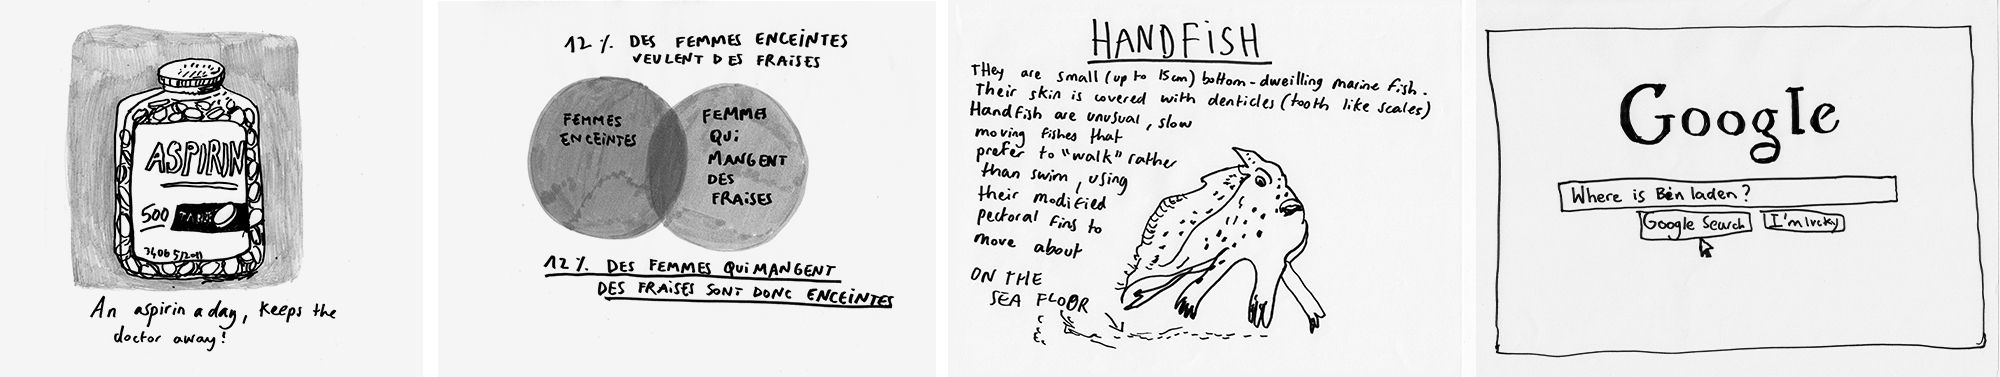 ASPIRIN
500
An aspirin a day, keeps the
doctor away!
12 % DES FEMMES ENCEINTES
VEULENT DES FRAISES
FEMMES
ENCEINTES
FEMMES
QUi
MANGENT
DES
FRAiSES
12 % DES FEMMES QUi MANGENT
DES FRAISES SONT DONC ENCEINTES
HANDFiSH
THey are small (up to 15cm) bottom-dweilling marine fish.
Their skin is covered with denticles (tooth like scales)
Handfish are unusual, slow
moving fishes that
prefer to "walk" rather
than swim, using
their modified
pectoral fins to
move about
ON THE
SEA FLOOR
Google
Where is Ben laden?
Google Search
I'm lucky